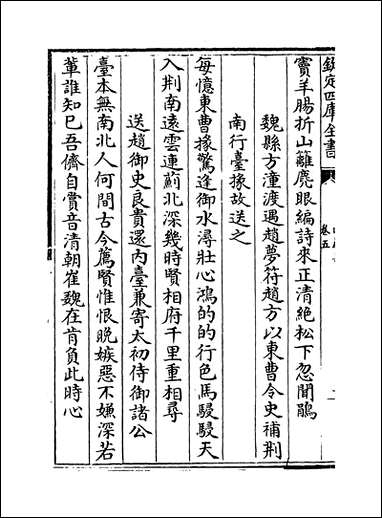 欽定四庫全書
卷五
竇羊腸折山籬麂眼編詩來正清絶松下忽聞鵑
魏縣方潼渡遇趙夢符趙方以東曹令史補荆
南行臺掾故送之
每憶東曹掾驚逢御水潯壯心鴻的的行色馬駸駸天
入荆南遠雲連薊北深幾時賢相府千里重相尋
送趙御史良貴還内臺兼寄太初侍御諸公
臺本無南北人何間古今薦賢惟恨晩嫉惡不嫌深若
輩誰知已吾儕自賞音清朝崔魏在肯負此時心